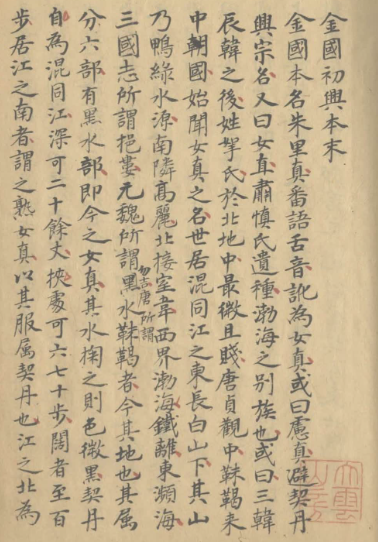 金國初興本末
金國本名朱里真番語舌音訛為女真或曰慮真避契丹
興宗名又曰女直肅慎氏遺種渤海之別族也或曰三韓
辰韓之後姓拏氏於北地中最微且賤唐貞觀中靺鞨來
中朝中國始聞女真之名世居混同江之東長白山下其山
乃鴨綠水源南隣高麗北接室韋西界渤海鐵離東瀕海
三國志所謂挹婁元魏所謂勿吉唐所謂黑水靺鞨者今其地也其属
分六部有黑水部即今之女真其水掬之則色微黑契丹
自為混同江深可二十餘丈狹處可六七十步闊者至百
步居江之南者謂之熟女真以其服属契丹也江之北為